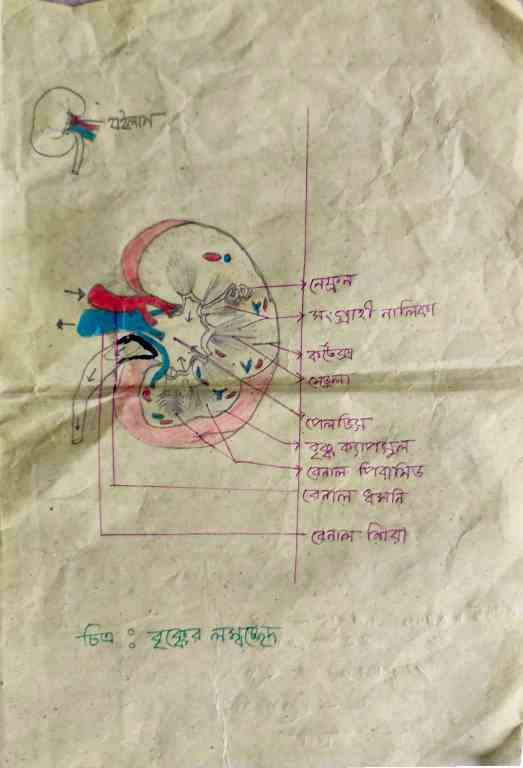 হাইলাস
নেফ্রন
সংগ্রাহী নালিকা
কর্টেক্স
মেডুলা
পেলভিস
বৃক্ক ক্যাপসুল
রেনাল পিরামিড
রেনাল ধমনি
রেনাল শিরা
চিত্র : বৃক্কের লম্বচ্ছেদ